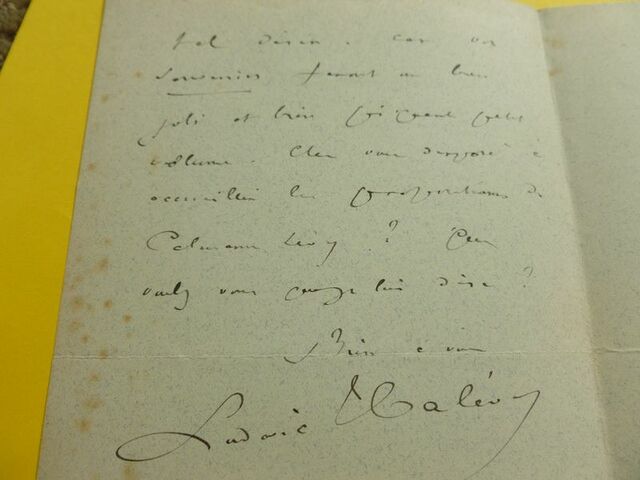 tel désir. car vos
Souvenirs feront un bien
joli et bien piquant petit
volume. Etes vous disposé à
accueillir les propositions de
Calmann Lévy ? Que
voulez vous que je lui dise ?
Bien à vous
Ludovic Halévy